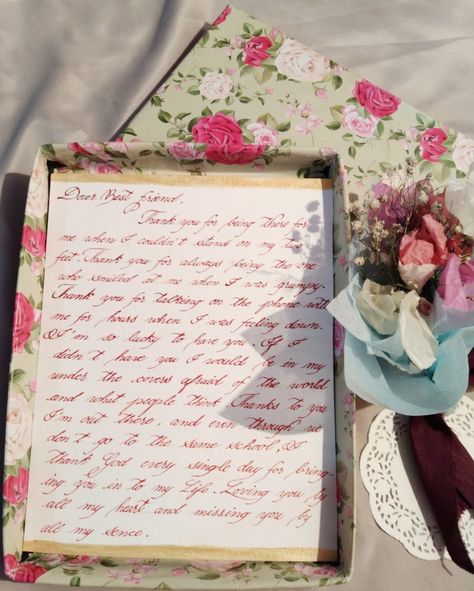 Dear Best friend,
Thank you for being there for
me when I couldn't stand on my two
feet. Thank you for always being the one
who smiled at me when I was grumpy.
Thank you for talking on the phone with
me for hours when I was feeling down.
I'm so lucky to have you. If I
didn't have you I would be in my
under the covers afraid of the world
and what people think Thanks to you
I'm out there, and even through we
don't go to the same school, I
thank God every single day for bring-
ing you in to my Life. Loving you by
all my heart and missing you by
all my sence.